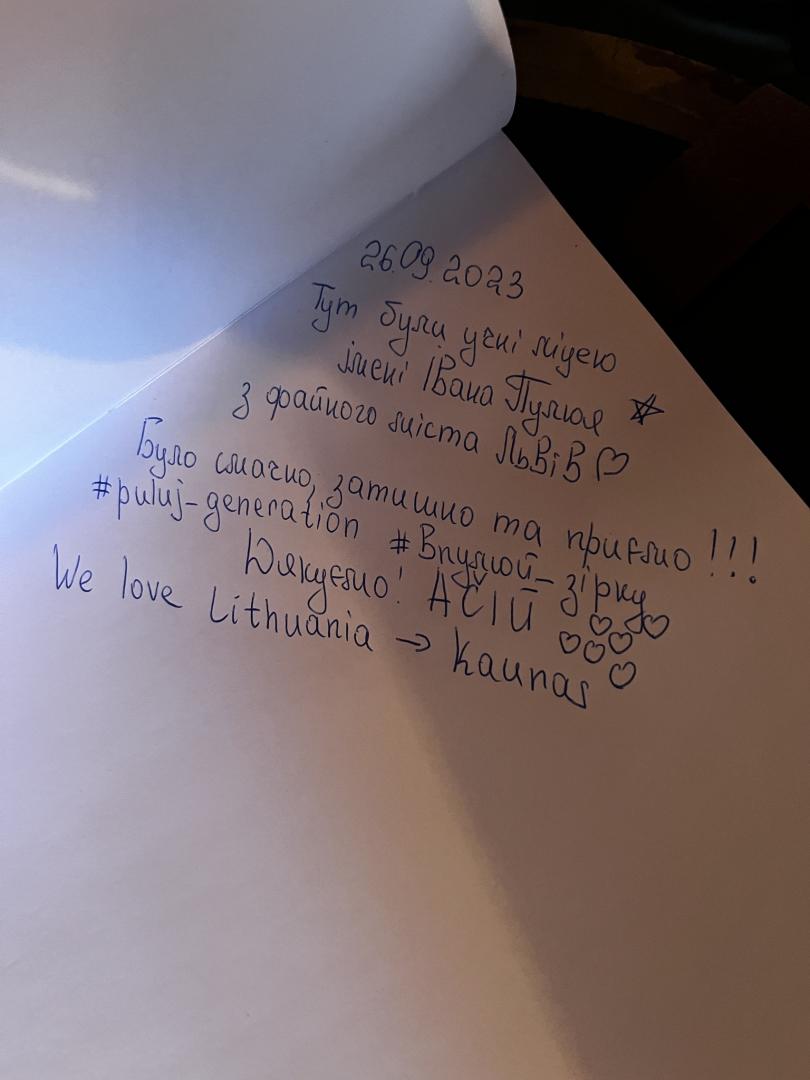 26.09.2023
Тут були учні ліцею
імені Івана Пулюя ☆
з файного міста Львів ♡
Було смачно, затишно та приємно!!!
#puluj-generation #Впулюй_зірку
Дякуємо! AČIŪ ♡♡♡♡♡
We love Lithuania → Kaunas ♡